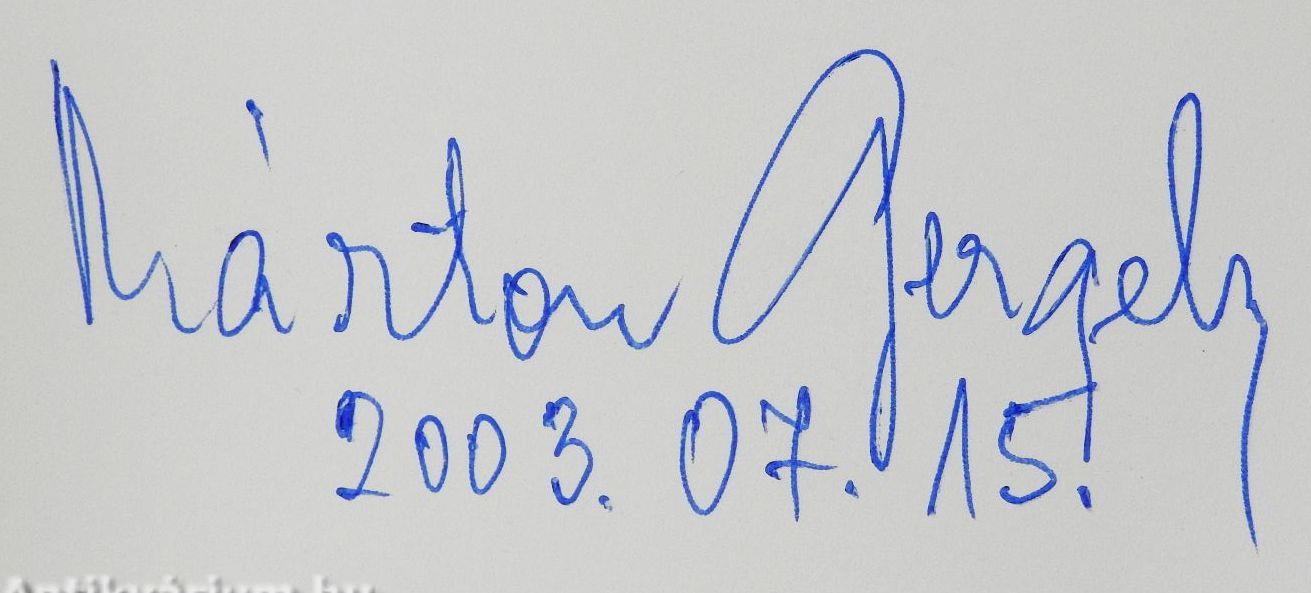 Márton Gergely
2003. 07. 15.
Antikvárium.hu